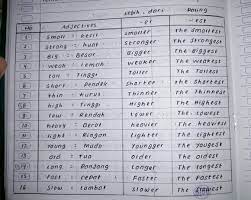 Lebih.. dari Paling
No Adjectives - er - est
1 Small = kecil smaller The smallest
2 Strong = kuat stronger The strongest
3 Big = Besar Bigger The Biggest
4 weak = Lemah weaker The weakest
5 tall = Tinggi Taller The Tallest
6 Short = Pendek shorter The shortest
7 thin = kurus Thinner The Thinnest
8 high = Tinggi Higher The Highest
9 low = Rendah Lower The Lowest
10 heavy = Berat heavier The heaviest
11 light = Ringan Lighter The Lightest
12 Young = Muda Youngger The Youngest
13 old = Tua Older The oldest
14 Long = Panjang Longer The longest
15 Fast = cepat Faster The Fastest
16 Slow = Lambat Slower The Slowest